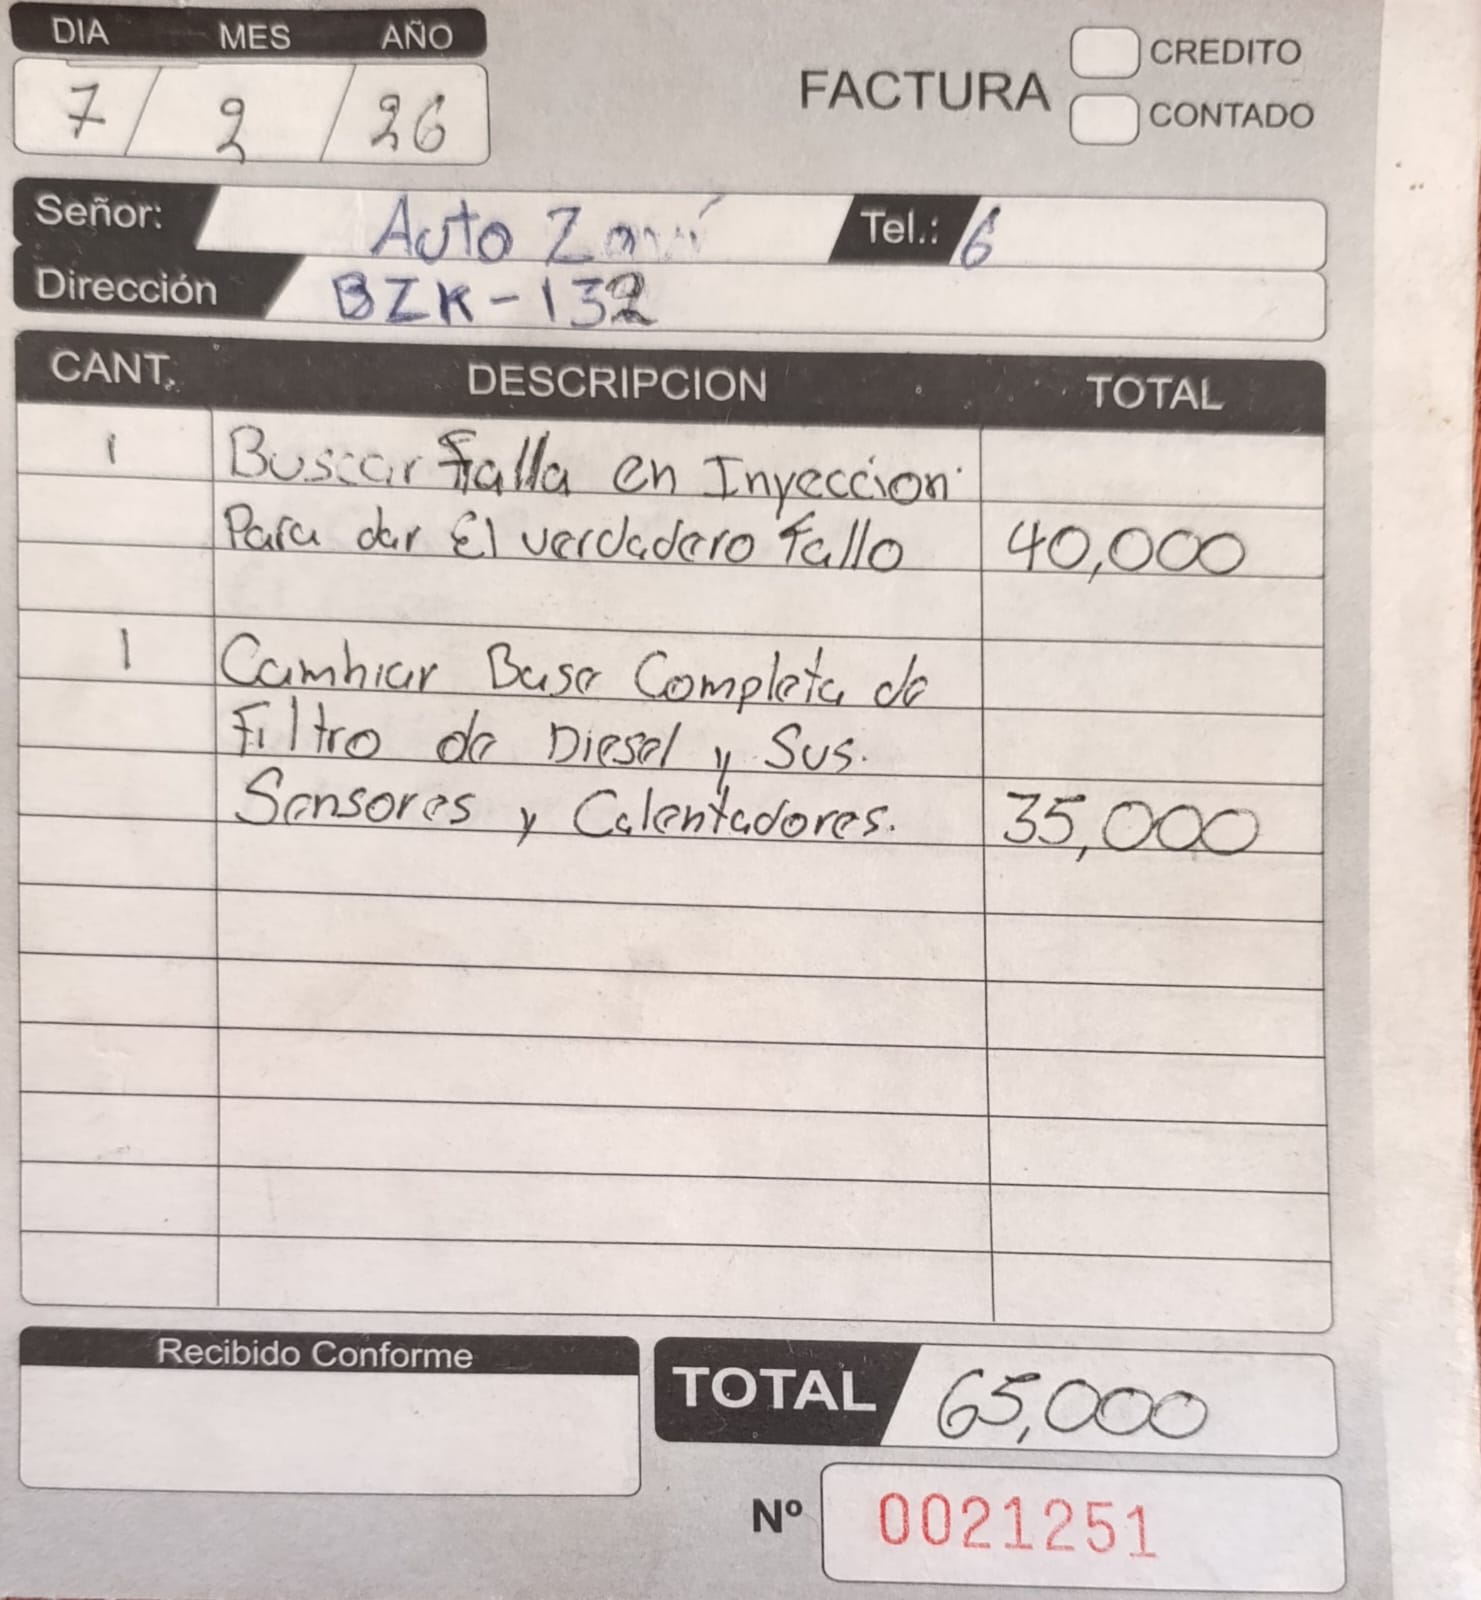 DIA MES AÑO
7 / 2 / 26
FACTURA
CREDITO
CONTADO
Señor: Auto Tel.: 6
Dirección BZK-132
CANT. DESCRIPCION TOTAL
1 Buscar falla en Inyeccion
Para dar El verdadero fallo 40,000
1 Cambiar Base Completa de
Filtro de Diesel y Sus.
Sensores y Calentadores. 35,000
Recibido Conforme
TOTAL 65,000
Nº 0021251